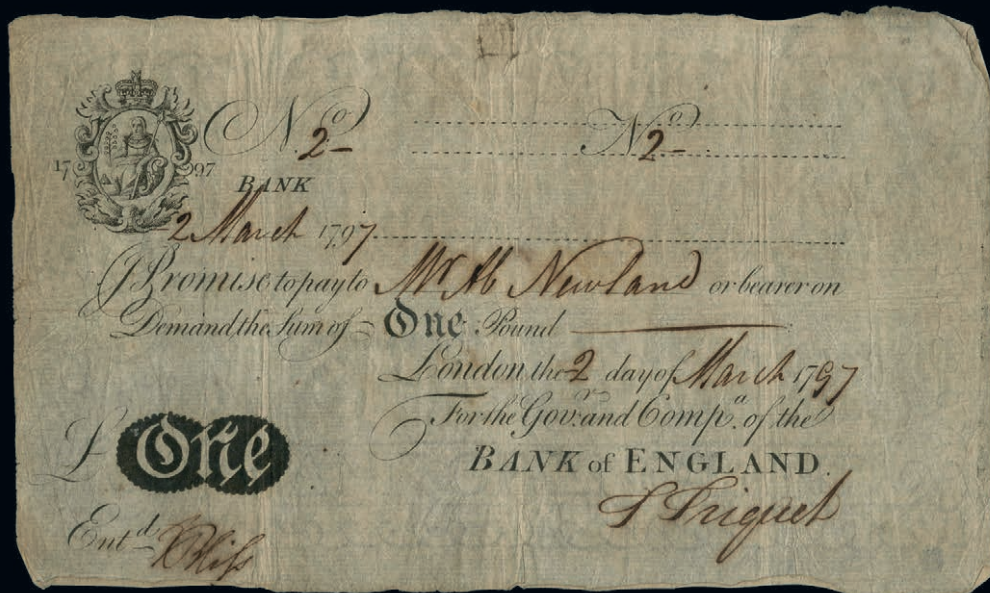 No 2 No 2
17 97
BANK
2 March 1797
I Promise to pay to Mr Ab Newland or bearer on
Demand, the Sum of One Pound
London, the 2 day of March 1797
For the Govr. and Compa. of the
BANK of ENGLAND.
£ One
S Triquet
Entd. Bliſs